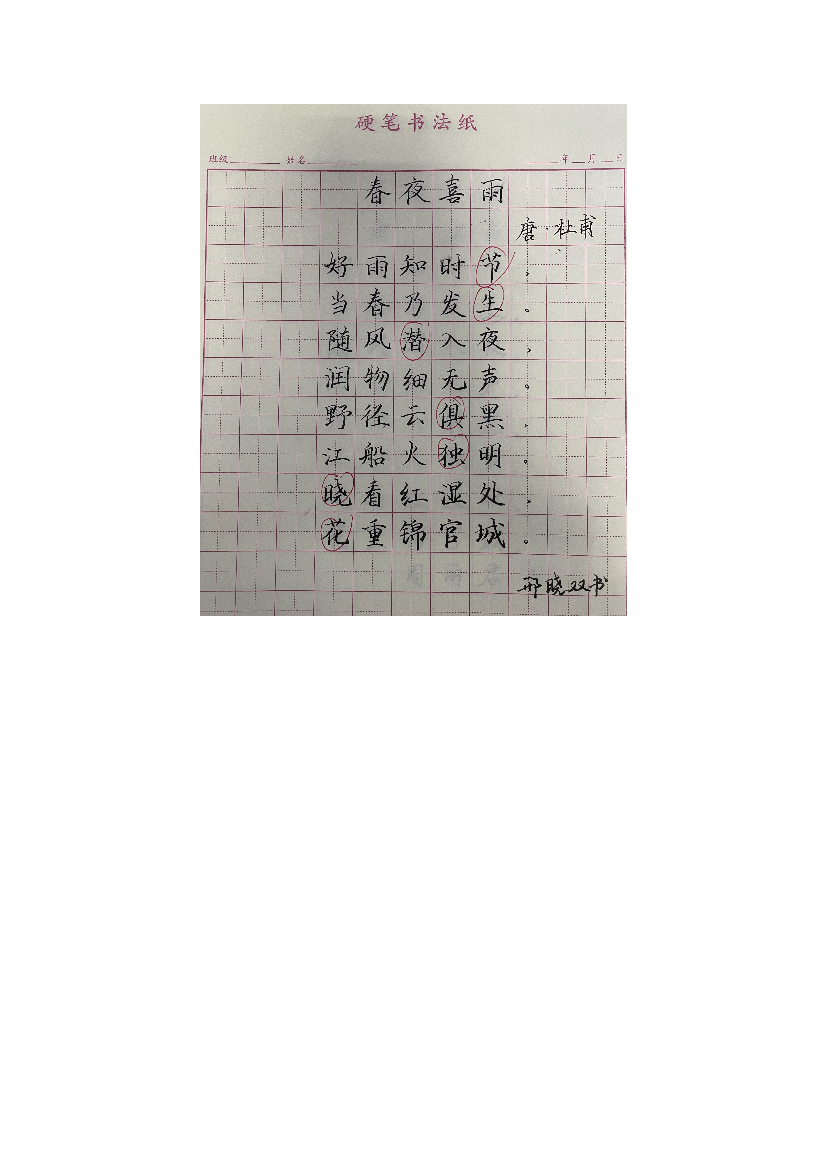 硬笔书法纸
班级 姓名 年 月 日
春夜喜雨
唐·杜甫
好雨知时节，
当春乃发生。
随风潜入夜，
润物细无声。
野径云俱黑，
江船火独明。
晓看红湿处，
花重锦官城。
邢晓双书